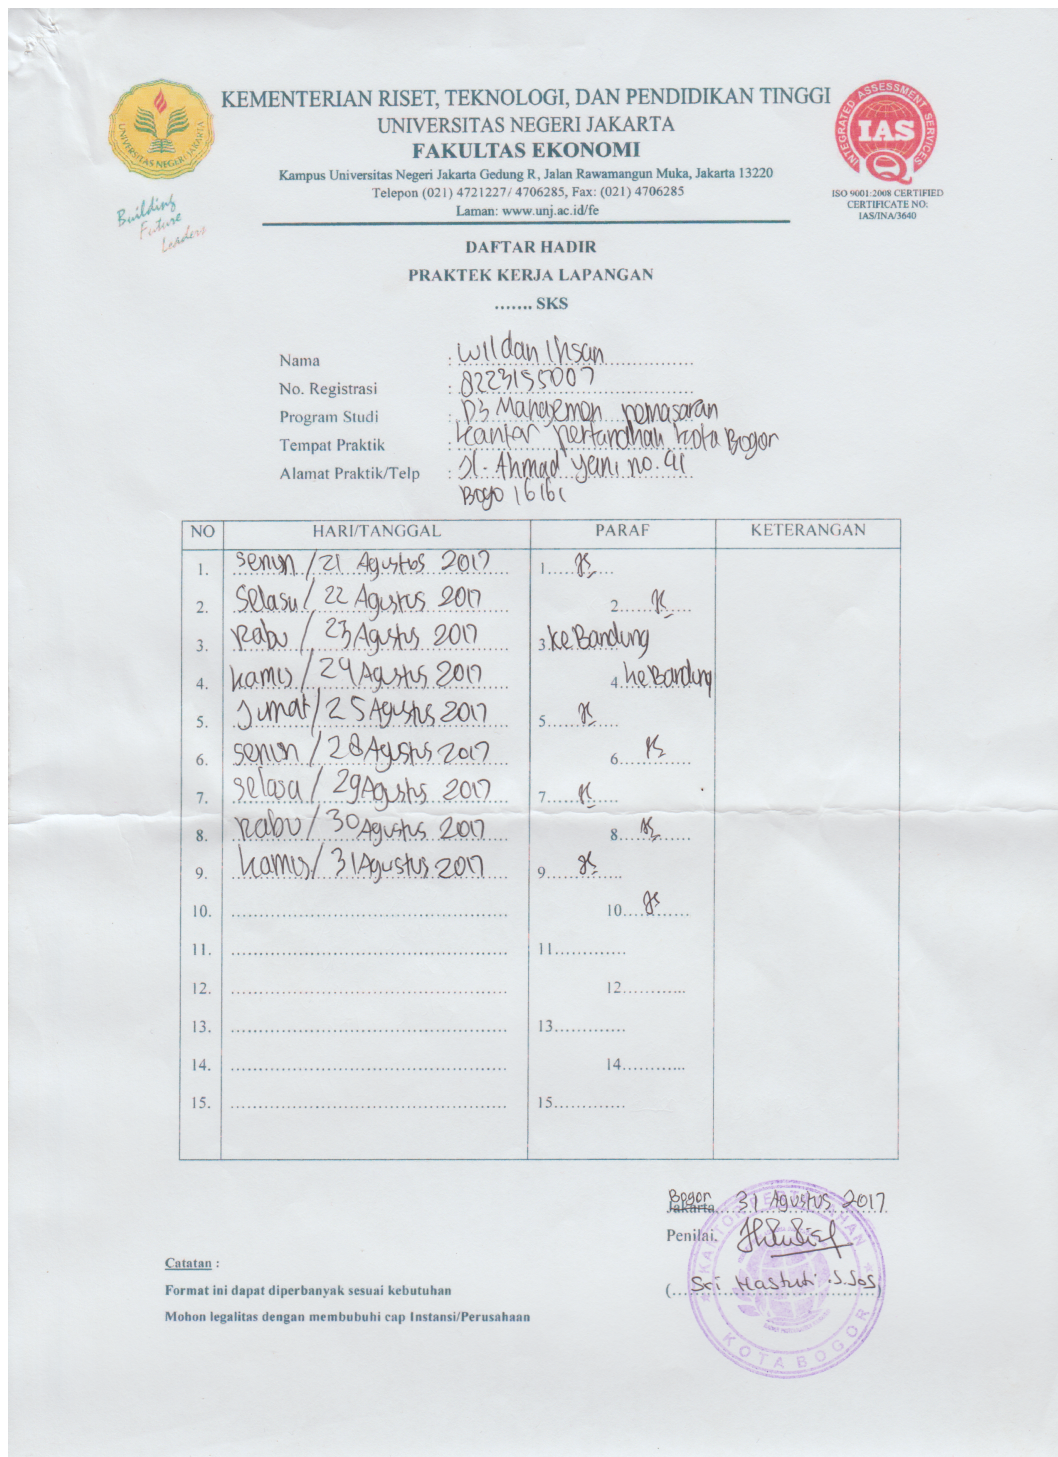 KEMENTERIAN RISET, TEKNOLOGI, DAN PENDIDIKAN TINGGI
UNIVERSITAS NEGERI JAKARTA
FAKULTAS EKONOMI
Kampus Universitas Negeri Jakarta Gedung R, Jalan Rawamangun Muka, Jakarta 13220
Telepon (021) 4721227/ 4706285, Fax: (021) 4706285
Laman: www.unj.ac.id/fe
UNIVERSITAS NEGERI JAKARTA
Building
Future
Leaders
INTEGRATED ASSESSMENT SERVICES
IAS
Q
ISO 9001:2008 CERTIFIED
CERTIFICATE NO:
IAS/INA/3640
DAFTAR HADIR
PRAKTEK KERJA LAPANGAN
....... SKS
Nama : Wildan Ihsan
No. Registrasi : 8223155007
Program Studi : D3 Manajemen pemasaran
Tempat Praktik : Kantor pertanahan Kota Bogor
Alamat Praktik/Telp : Jl. Ahmad Yani no. 41
Bogo 16161
NO HARI/TANGGAL PARAF KETERANGAN
1. Senin / 21 Agustus 2017 1.
2. Selasa / 22 Agustus 2017 2.
3. Rabu / 23 Agustus 2017 3 ke Bandung
4. Kamis / 24 Agustus 2017 4. ke Bandung
5. Jumat / 25 Agustus 2017 5.
6. Senin / 28 Agustus 2017 6.
7. Selasa / 29 Agustus 2017 7.
8. Rabu / 30 Agustus 2017 8.
9. Kamis / 31 Agustus 2017 9.
10. 10.
11. 11.
12. 12.
13. 13.
14. 14.
15. 15.
Bogor
Jakarta, 31 Agustus 2017
Penilai,
(Sri Hastuti .S.Sos)
KANTOR PERTANAHAN
KOTA BOGOR
Catatan :
Format ini dapat diperbanyak sesuai kebutuhan
Mohon legalitas dengan membubuhi cap Instansi/Perusahaan